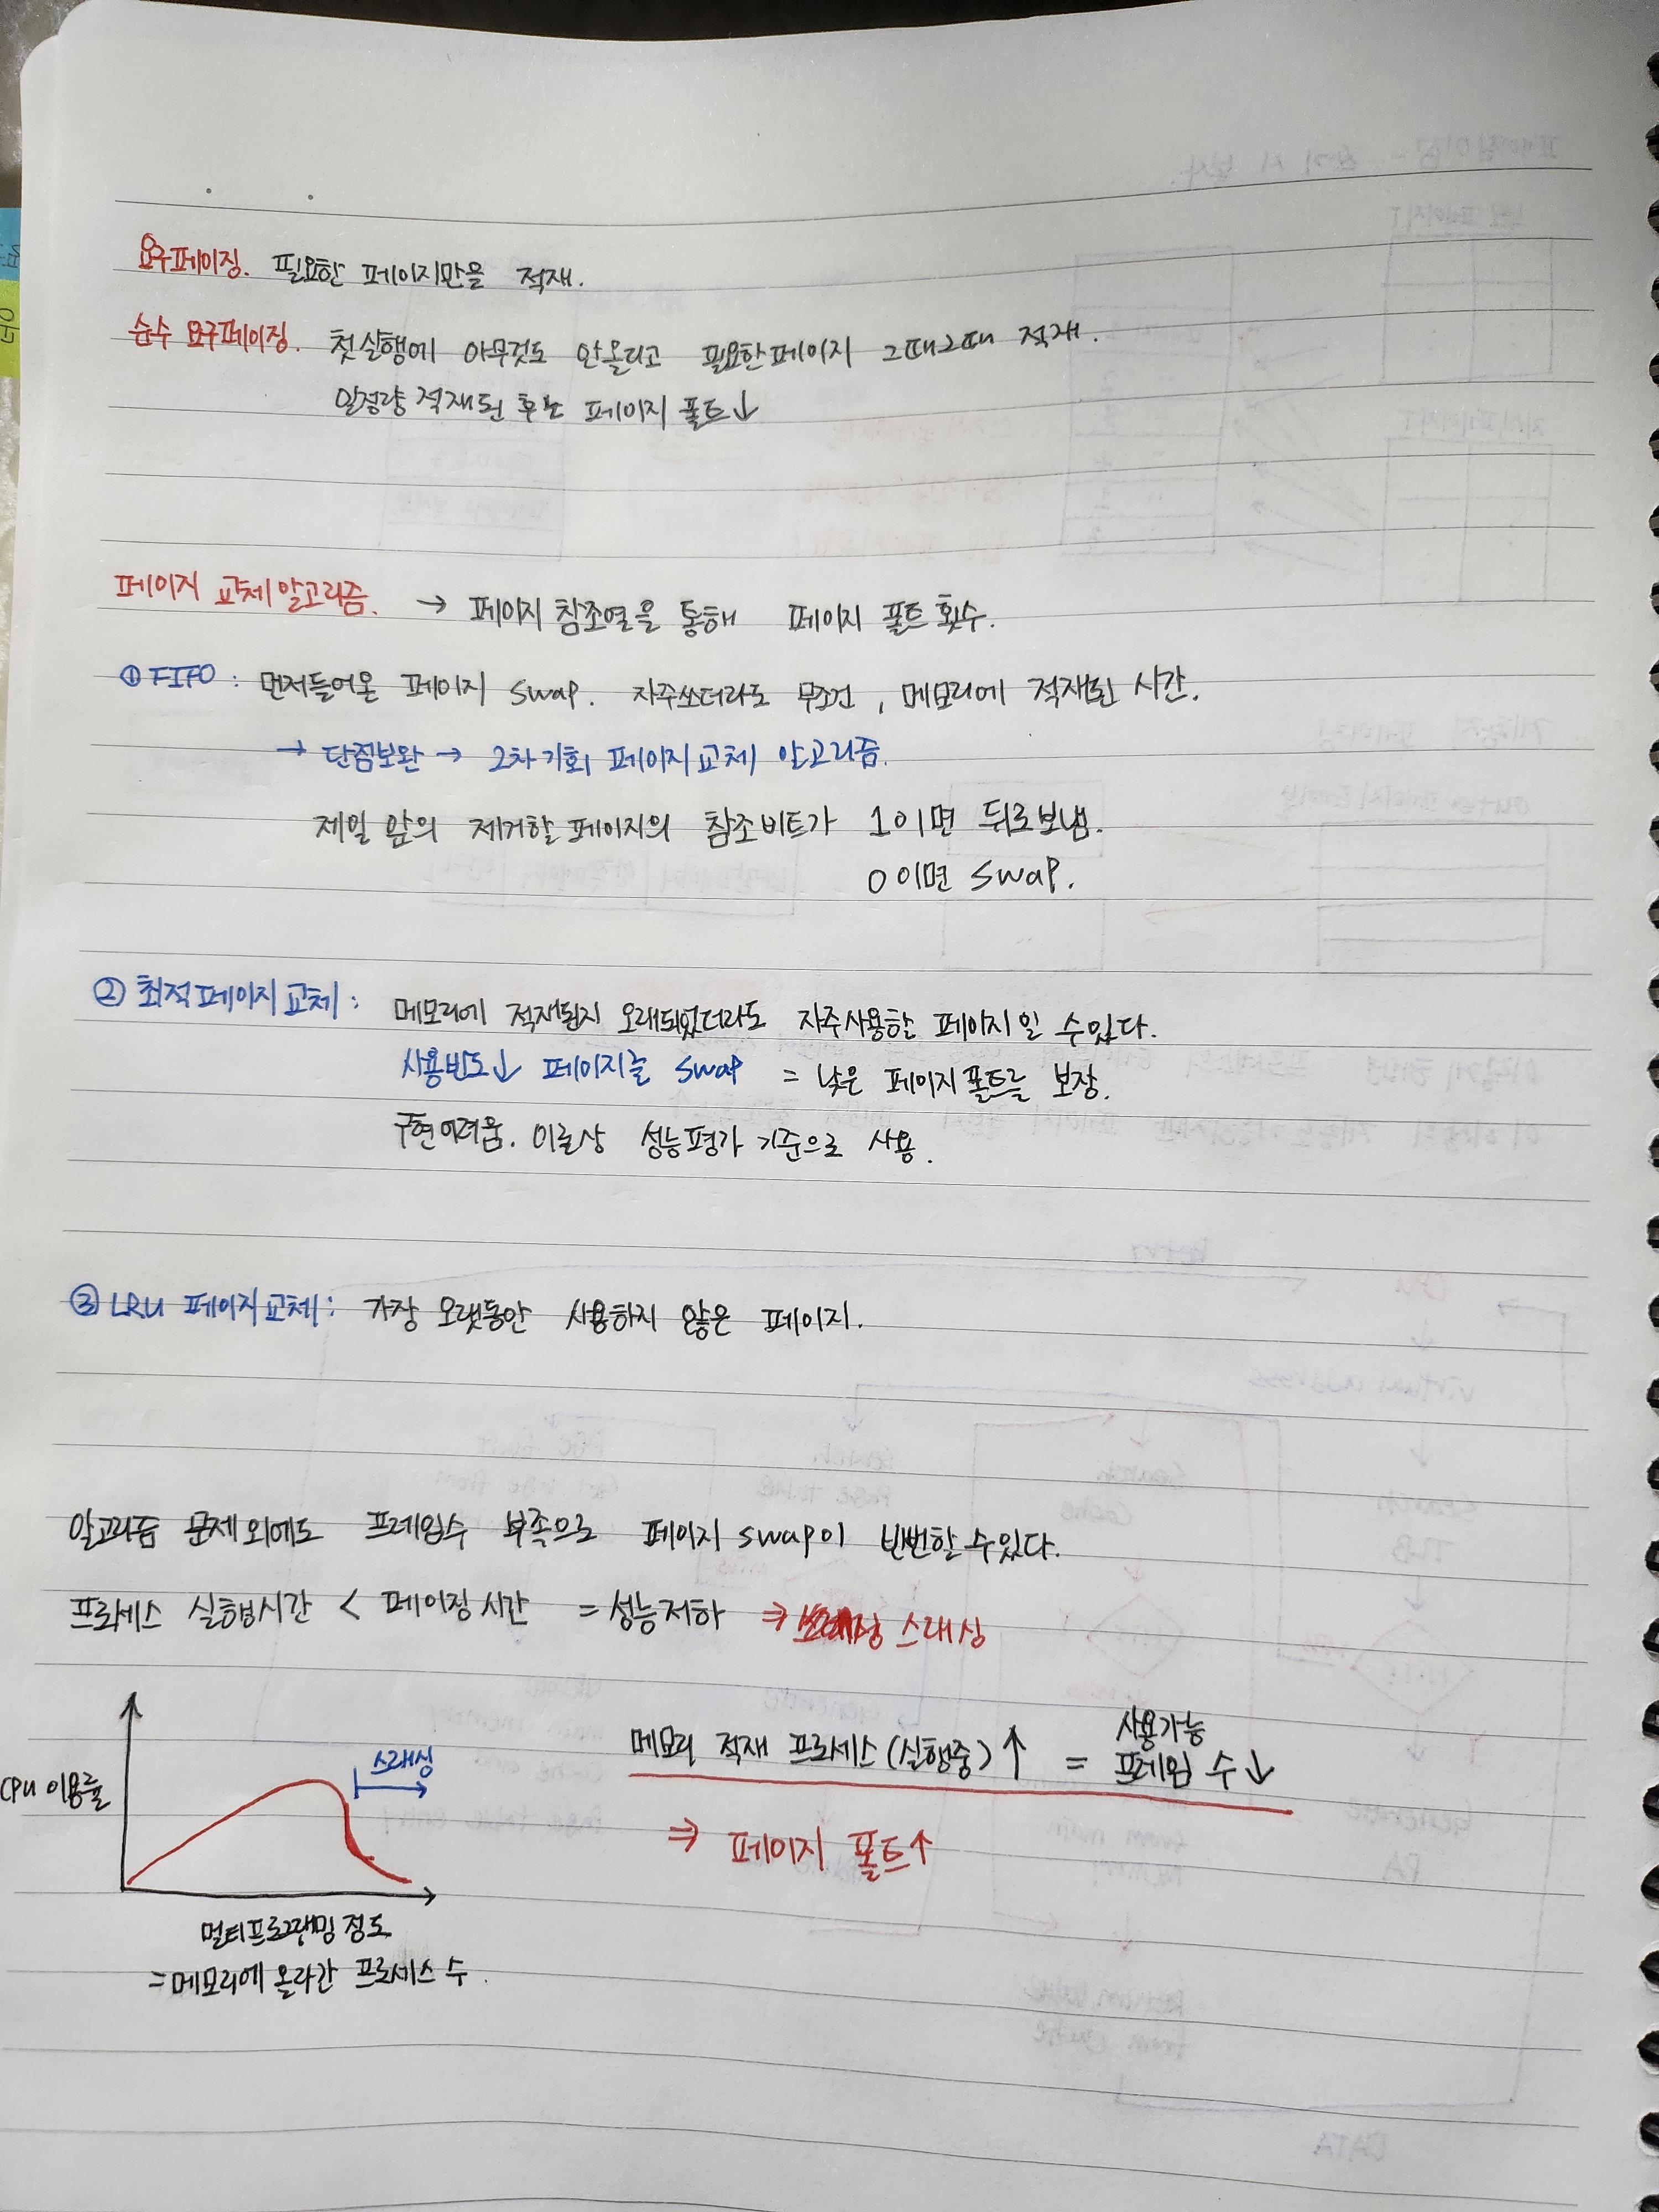 요구페이징. 필요한 페이지만을 적재.
순수 요구페이징. 첫실행에 아무것도 안올리고 필요한페이지 그때그때 적재.
일정량 적재된 후는 페이지 폴트↓
페이지 교체 알고리즘. → 페이지 참조열을 통해 페이지 폴트 횟수.
① FIFO : 먼저들어온 페이지 swap. 자주쓰더라도 무조건, 메모리에 적재된 시간.
→ 단점보완 → 2차기회 페이지교체 알고리즘.
제일 앞의 제거할 페이지의 참조비트가 1이면 뒤로보냄.
0이면 swap.
② 최적페이지교체 : 메모리에 적재된지 오래되었더라도 자주사용할 페이지일 수있다.
사용빈도↓ 페이지를 swap = 낮은 페이지폴트를 보장.
구현어려움. 이론상 성능평가 기준으로 사용.
③ LRU 페이지교체 : 가장 오랫동안 사용하지 않은 페이지.
알고리즘 문제 외에도 프레임수 부족으로 페이지 swap이 빈번할 수있다.
프로세스 실행시간 < 페이징 시간 = 성능저하 ⇒ 스래싱
스래싱
CPU 이용률
멀티프로그래밍 정도
=메모리에 올라간 프로세스 수.
메모리 적재 프로세스(실행중)↑ = 사용가능 프레임 수↓
⇒ 페이지 폴트↑